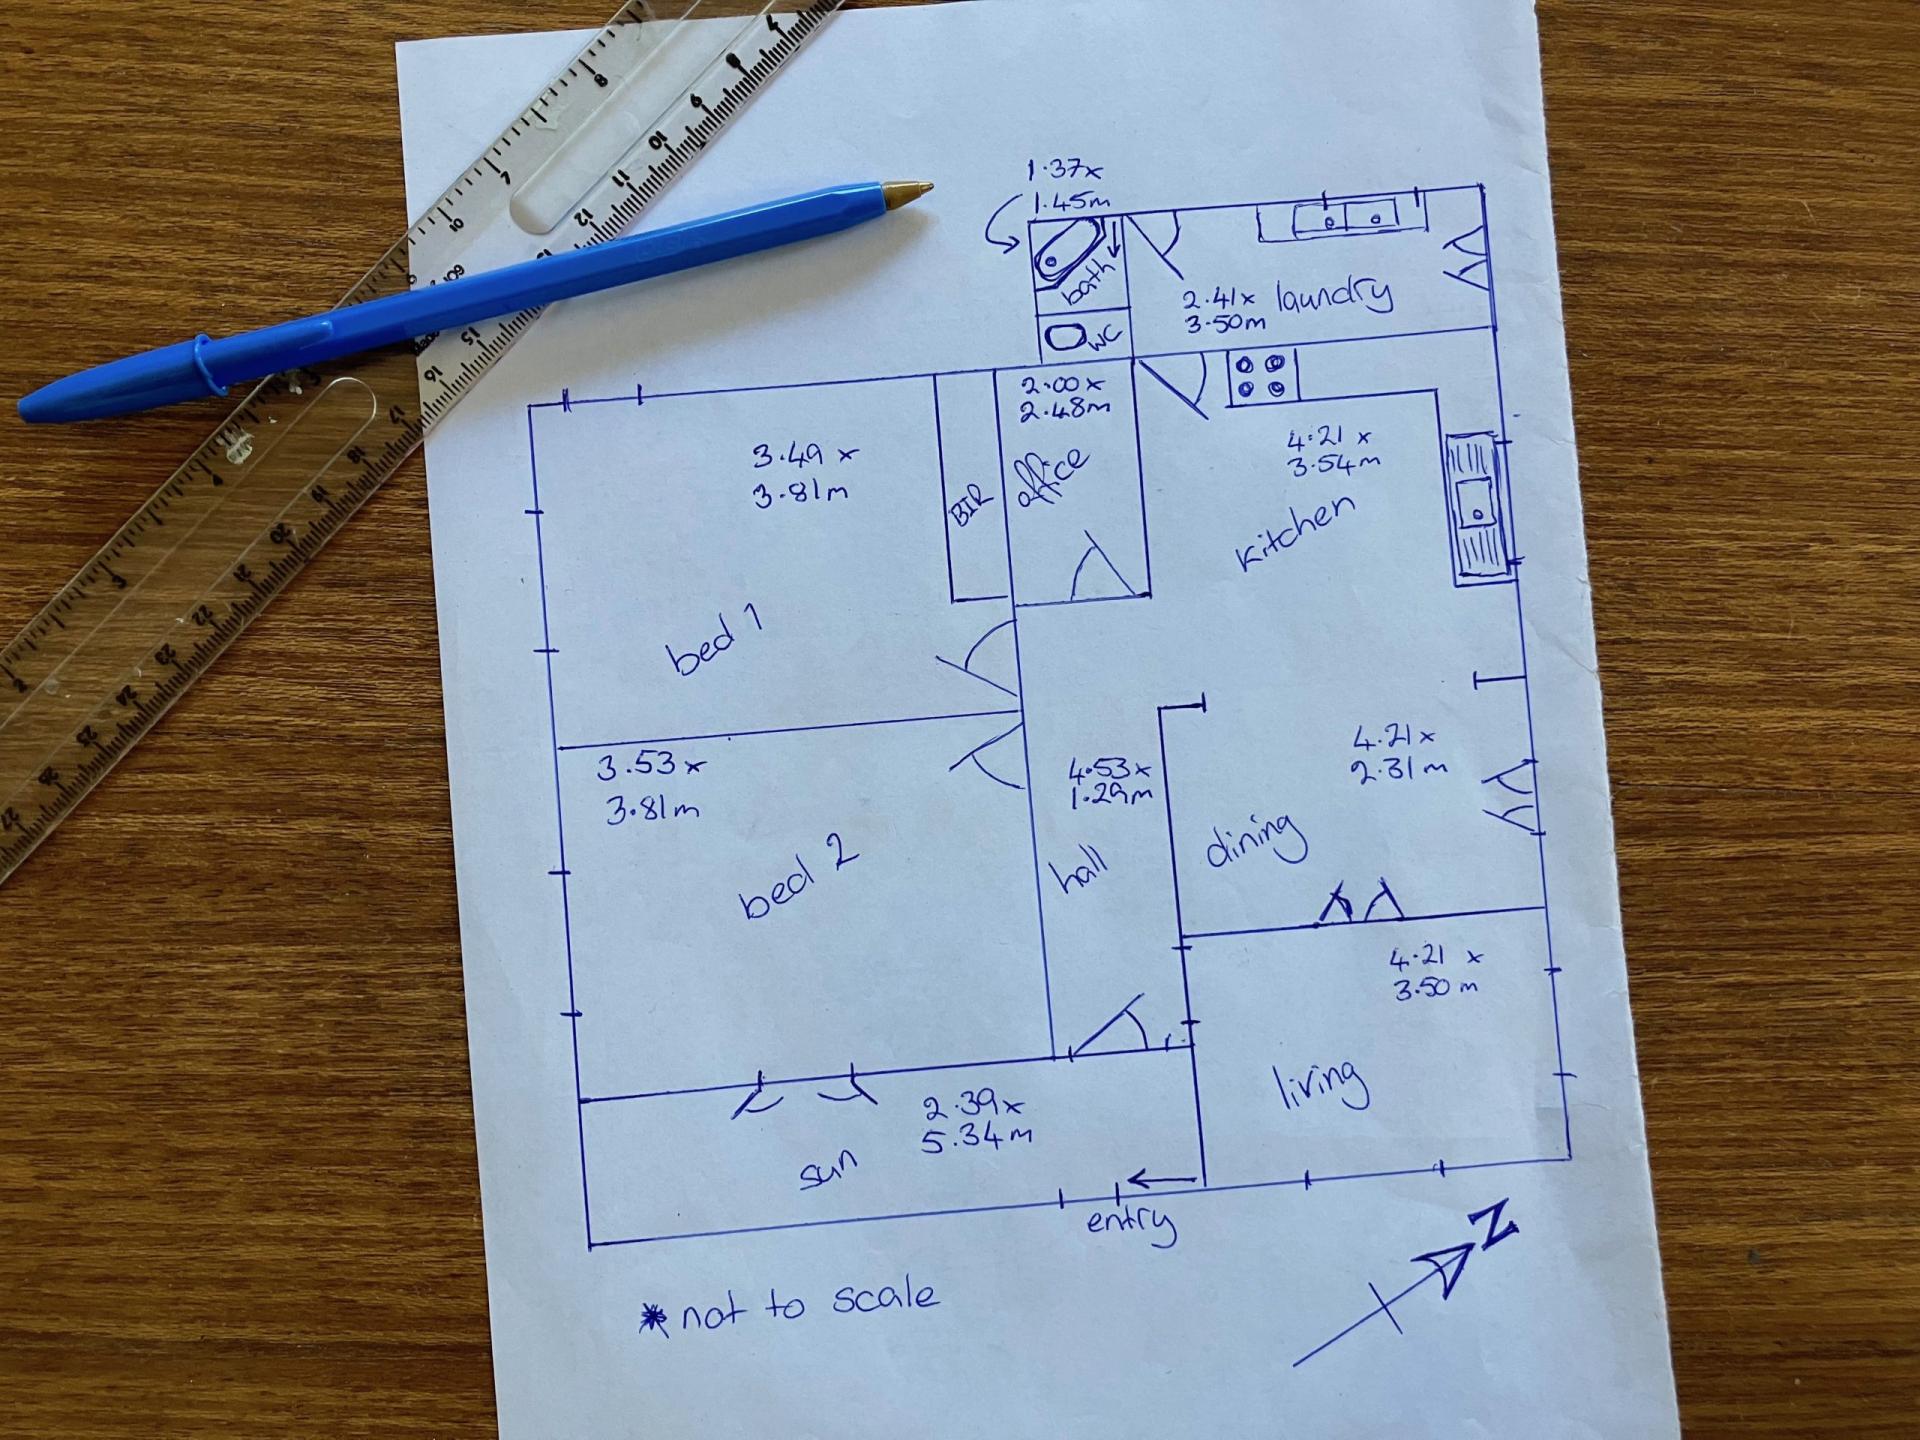 1.37x
1.45m
bath
WC
2.41x
3.50m
laundry
2.00x
2.48m
office
BIR
3.49 x
3.81m
bed 1
4.21 x
3.54m
kitchen
3.53x
3.81m
bed 2
4.53x
1.29m
hall
4.21x
2.31m
dining
4.21 x
3.50m
living
2.39x
5.34m
sun
entry
N
*not to scale